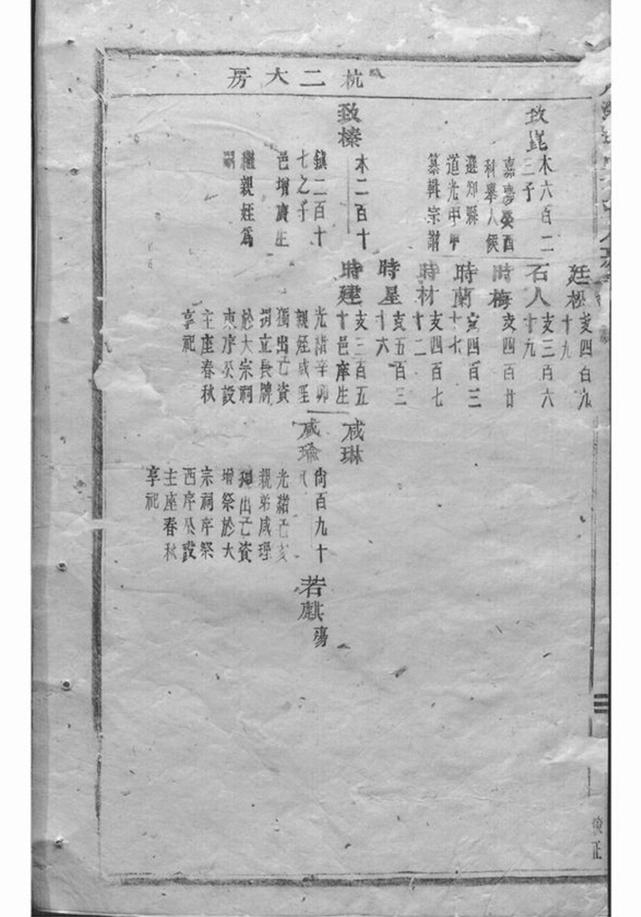 杭二大房
致崑
木六百二
三子
嘉慶癸酉
科舉人候
選知縣
道光甲申
纂輯宗譜
致榛
木二百十
鎮二百十
七之子
邑增廣生
繼親姪爲
嗣
廷松
支四百九
十九
石人
支三百六
十九
時梅
支四百廿
時蘭
支四百三
十七
時材
支四百七
十二
時星
支五百三
十六
時建
支三百五
十邑庠生
光緒辛卯
親姪咸理
獨出亡資
捐立長牌
於大宗祠
東序及設
主座春秋
享祀
咸琳
咸
尙百九十
八
光緒亡亥
親弟咸理
獨出亡資
增祭於大
宗祠庠祭
西序及設
主座春秋
享祀
若麒
殤
正